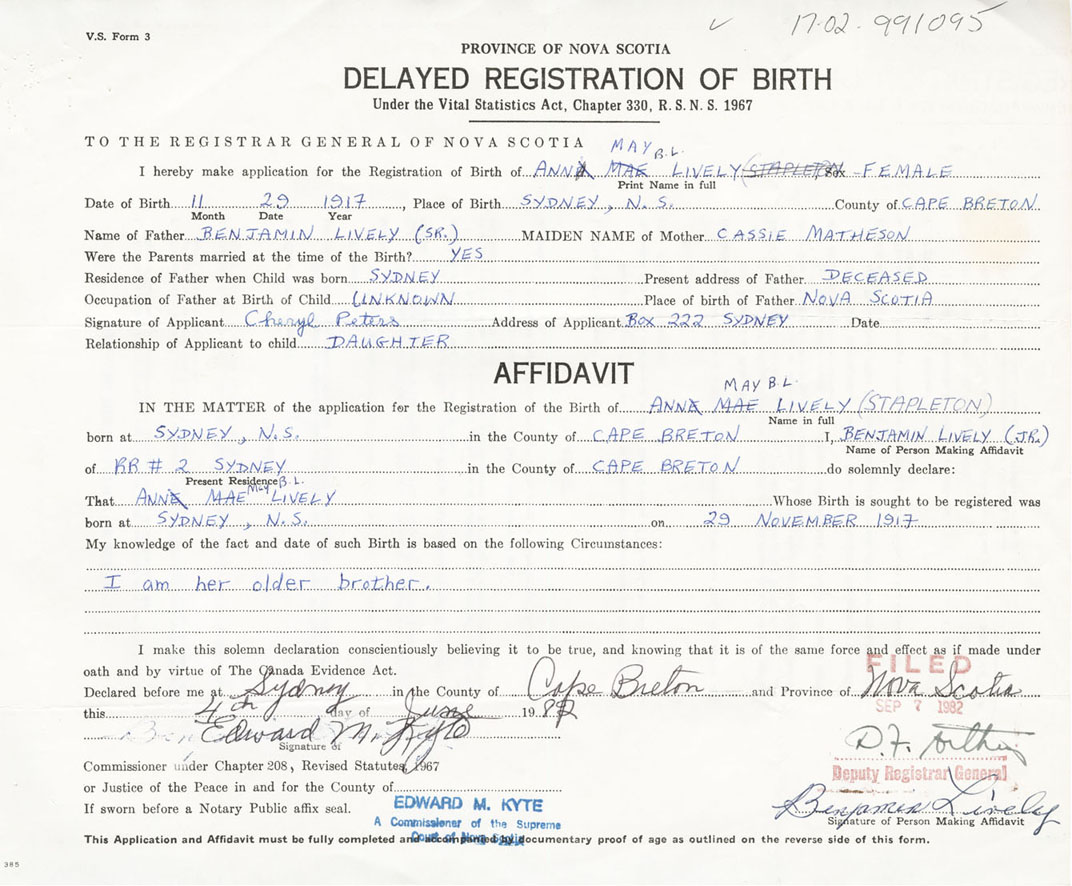 V.S. Form 3
17-02-991095
PROVINCE OF NOVA SCOTIA
DELAYED REGISTRATION OF BIRTH
Under the Vital Statistics Act, Chapter 330, R.S.N.S. 1967
TO THE REGISTRAR GENERAL OF NOVA SCOTIA
MAY B.L.
I hereby make application for the Registration of Birth of ANNA MAE LIVELY (STAPLETON) Sex - FEMALE
Print Name in full
Date of Birth 11 29 1917, Place of Birth SYDNEY, N.S. County of CAPE BRETON
Month Date Year
Name of Father BENJAMIN LIVELY (SR.) MAIDEN NAME of Mother CASSIE MATHESON
Were the Parents married at the time of the Birth? YES
Residence of Father when Child was born SYDNEY Present address of Father DECEASED
Occupation of Father at Birth of Child UNKNOWN Place of birth of Father NOVA SCOTIA
Signature of Applicant Cheryl Peters Address of Applicant BOX 222 SYDNEY Date
Relationship of Applicant to child DAUGHTER
AFFIDAVIT
MAY B.L.
IN THE MATTER of the application for the Registration of the Birth of ANNA MAE LIVELY (STAPLETON)
Name in full
born at SYDNEY, N.S. in the County of CAPE BRETON I, BENJAMIN LIVELY (JR.)
Name of Person Making Affidavit
of RR # 2 SYDNEY in the County of CAPE BRETON do solemnly declare:
Present Residence B.L.
May
That ANNE MAE LIVELY Whose Birth is sought to be registered was
born at SYDNEY, N.S. on 29 NOVEMBER 1917
My knowledge of the fact and date of such Birth is based on the following Circumstances:
I am her older brother.
I make this solemn declaration conscientiously believing it to be true, and knowing that it is of the same force and effect as if made under
oath and by virtue of The Canada Evidence Act.
FILED
Declared before me at Sydney in the County of Cape Breton and Province of Nova Scotia
SEP 7 1982
this 4th day of June 1982
Edward M. Kyte
Signature of
D.F.
Commissioner under Chapter 208, Revised Statutes, 1967
Deputy Registrar General
or Justice of the Peace in and for the County of
If sworn before a Notary Public affix seal.
EDWARD M. KYTE
A Commissioner of the Supreme
Court of Nova Scotia
Benjamin Lively
Signature of Person Making Affidavit
This Application and Affidavit must be fully completed and accompanied by documentary proof of age as outlined on the reverse side of this form.
385